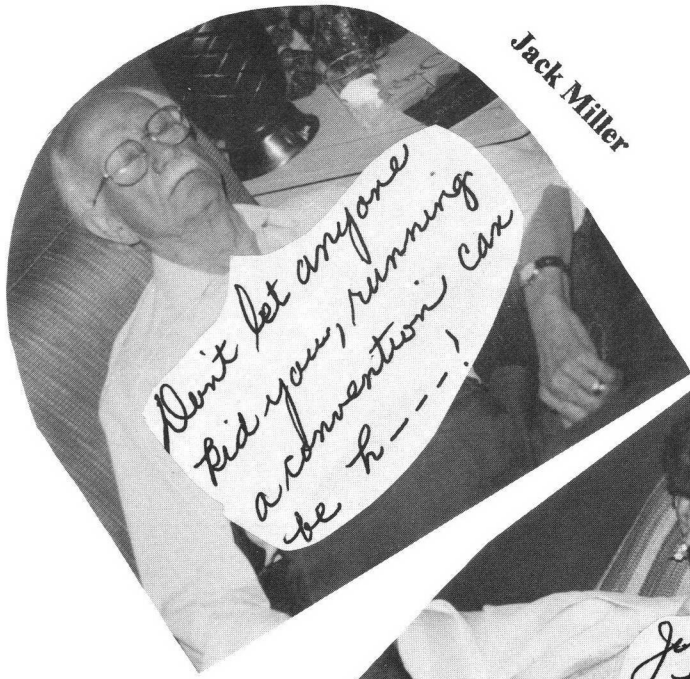 Jack Miller
Don't let anyone
kid you, running
a convention can
be h----!